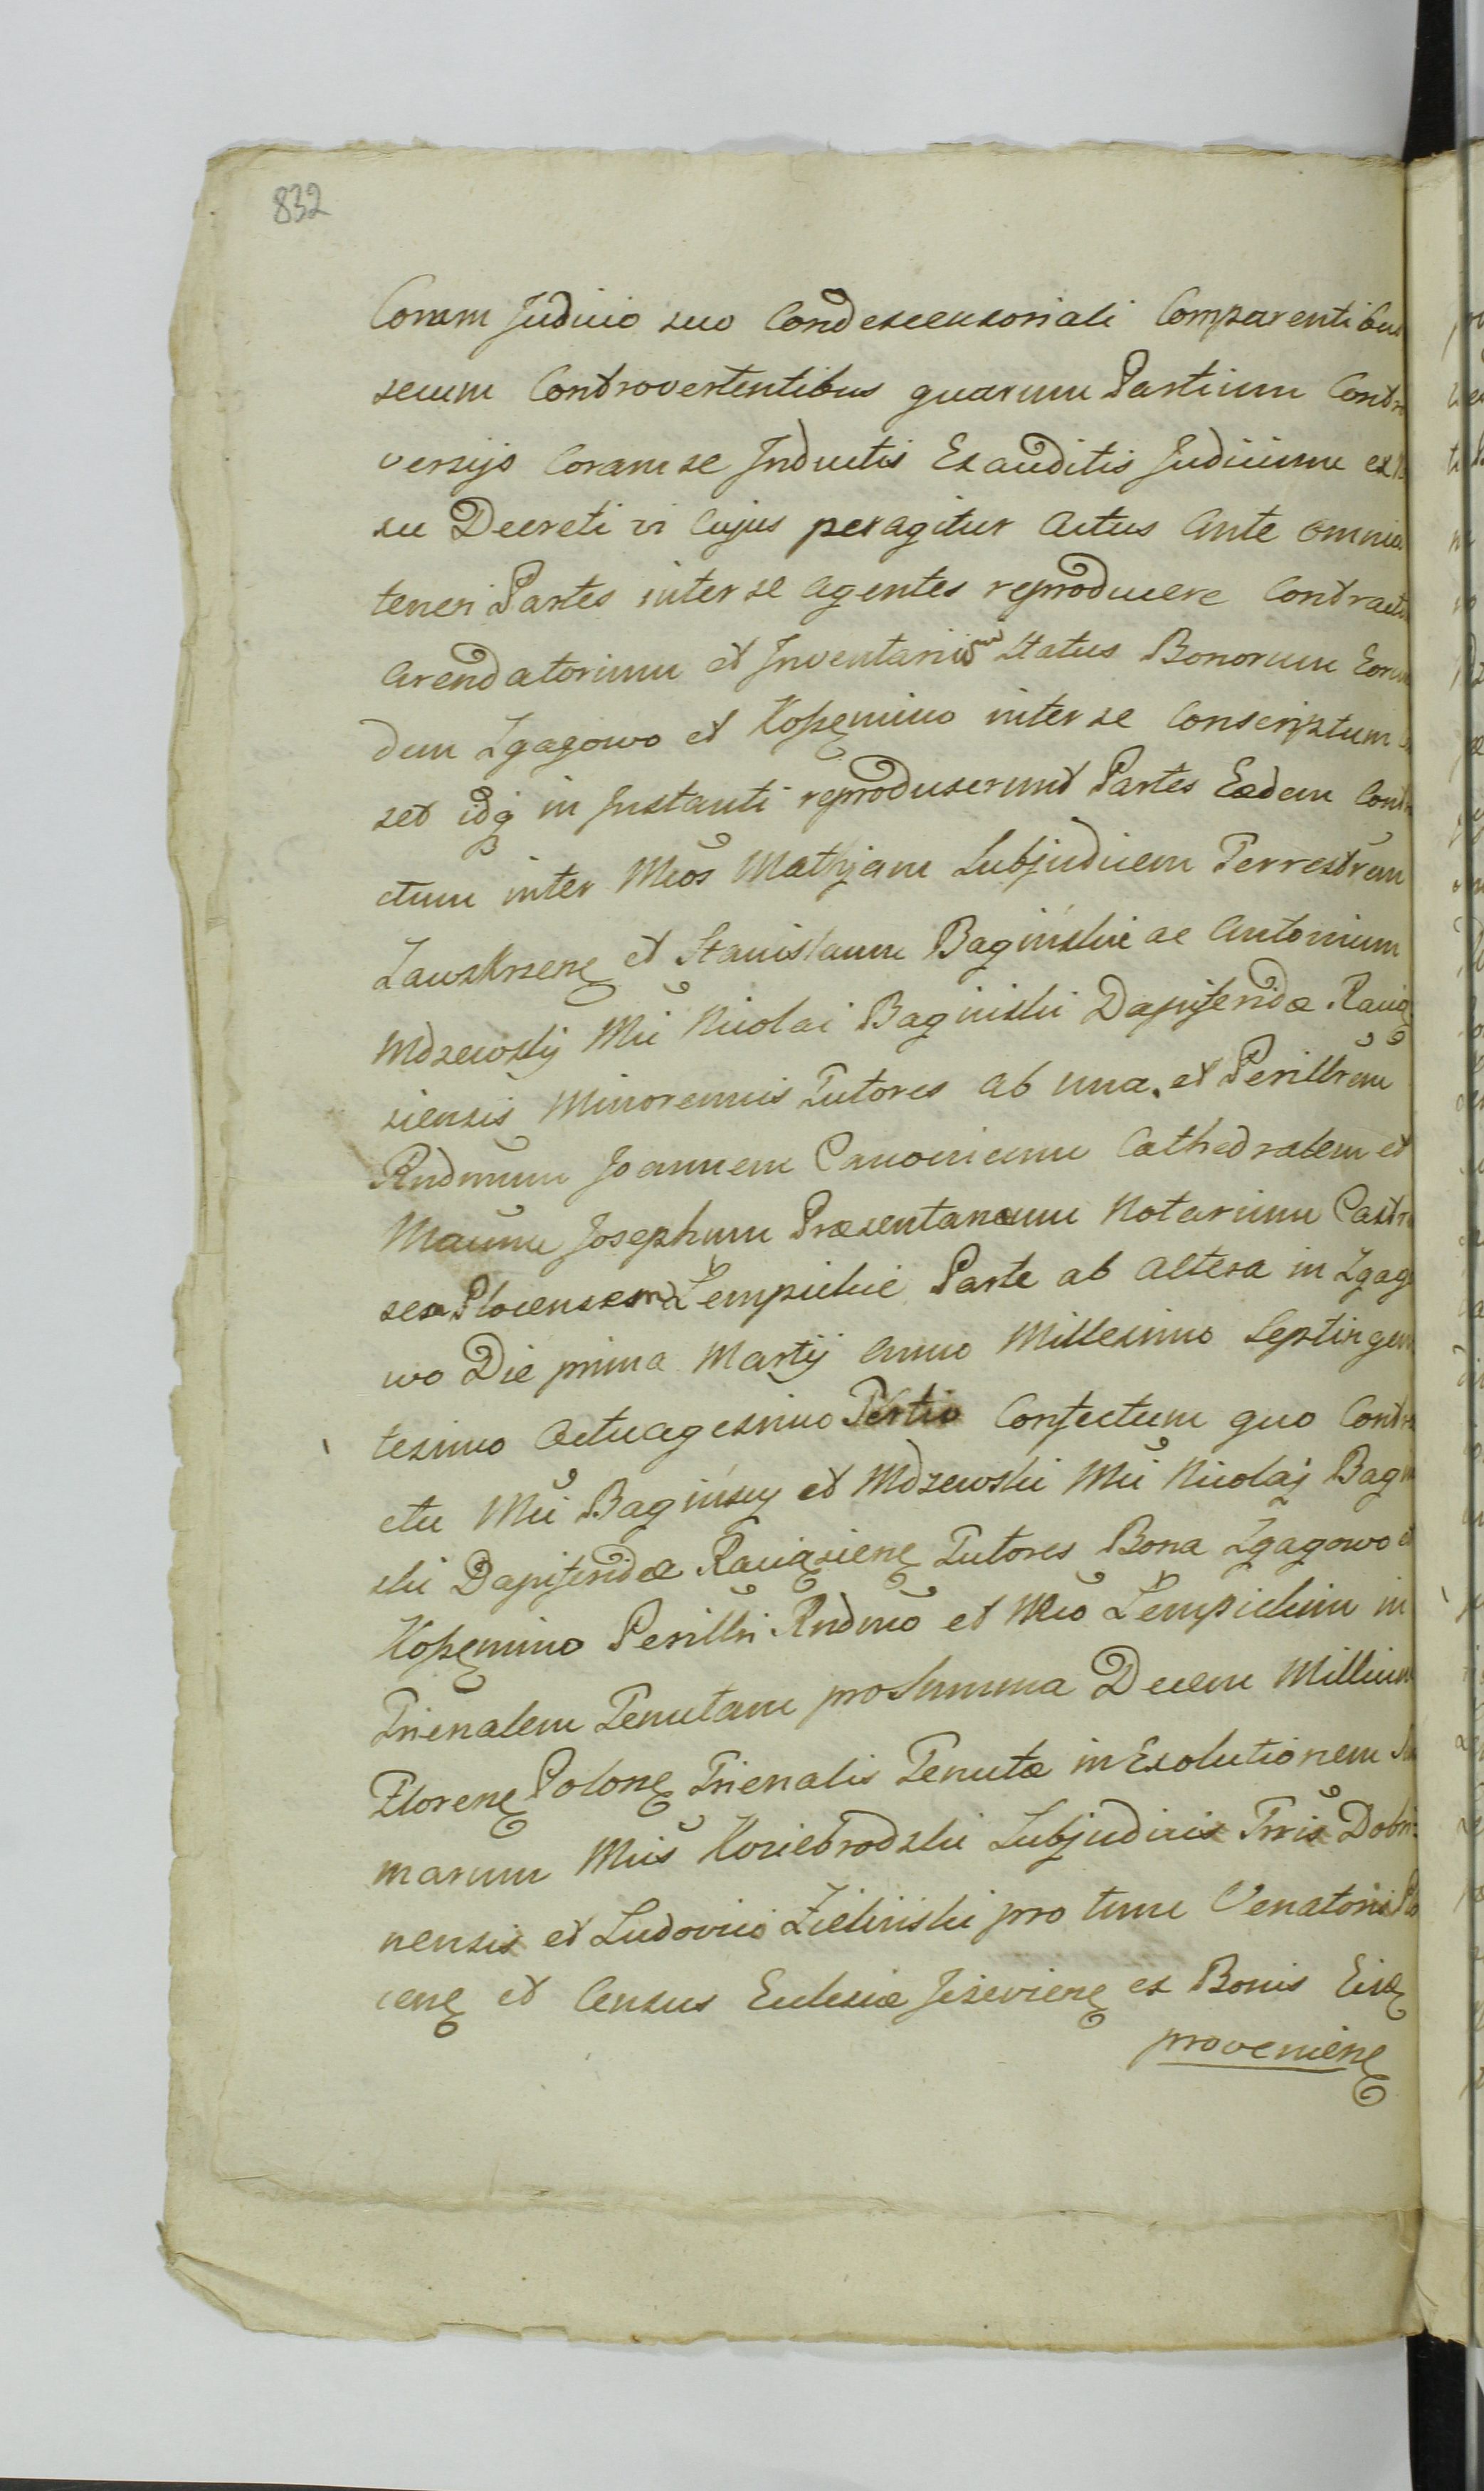 832
Coram Judicio suo Condescensoriali Comparentibus
secum Controvertentibus quarum Partium Contro
versijs Coram se Inductis Exauditis Judicium ex
su Decreti vi Cujus peragitur Actus Ante omnia
teneri Partes inter se Agentes reproducere Contractum
Arendatorium et Inventarium Status Bonorum Eorun
dem Zgagowo et Kossemino inter se Conscriptum
set idq in Instanti reproduxerunt Partes Eædem Contra
ctum inter Mcos Mathjam Subjudicem Terrestrem
Zawskrzene et Stanislaum Bagińskie ac Antonium
Mdzewskj Mci Nicolai Baginski Dapiferidæ Rawa
siensis Minorennis Tutores ab una, et Perillrem
Rndmum Joannem Canonicum Cathedralem et
Mcum Josephum Præsentaneum Notarium Castren
sem Plocensem Lempickie Parte ab Altera in Zgago
wo Die prima Martij Anno Millesimo Septingen
tesimo Octuagesimo Tertio Confectum quo Contra
ctu Mci Bagińscy et Mdzewski Mci Nicolaj Bagin
ski Dapiferidæ Rawasiene Tutores Bona Zgagowo et
Kossemino Perillri Rndmo et Mco Lempickim in
Trienalem Tenutam pro Summa Decem Millium
Florene Polone Trienalis Tenutæ in Exolutionem Sum
marum Mcis Koziebrodzki Subjudicis Trris Dobri:
nensis et Ludovico Zieliński pro tunc Venatoris Plo
cene et Census Ecclesiæ Jeżeviene ex Bonis Eisd
proveniene